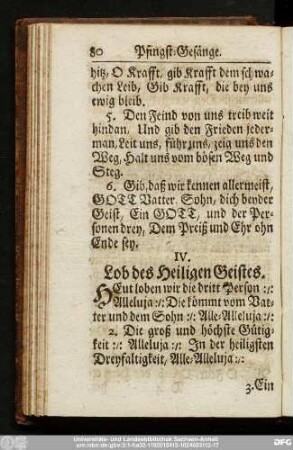 80 Pfingst-Gesänge.
hitz, O Krafft, gib Krafft dem schwa-
chen Leib, Gib Krafft, die bey uns
ewig bleib.
5. Den Feind von uns treib weit
hindan, Und gib den Frieden jeder-
man, Leit uns, führ uns, zeig uns den
Weg, Halt uns vom bösen Weg und
Steg.
6. Gib, daß wir kennen allermeist,
GOTT Vatter, Sohn, dich beyder
Geist, Ein GOTT, und der Per-
sonen drey, Dem Preiß und Ehr ohn
Ende sey.
IV.
Lob des Heiligen Geistes.
HEut loben wir die dritt Person :/:
Alleluja :/: Die kömmt vom Vat-
ter und dem Sohn :/: Alle-Alleluja :/:
2. Die groß und höchste Gütig-
keit :/: Alleluja :/: In der heiligsten
Dreyfaltigkeit, Alle-Alleluja :/:
3. Ein
Universitäts- und Landesbibliothek Sachsen-Anhalt